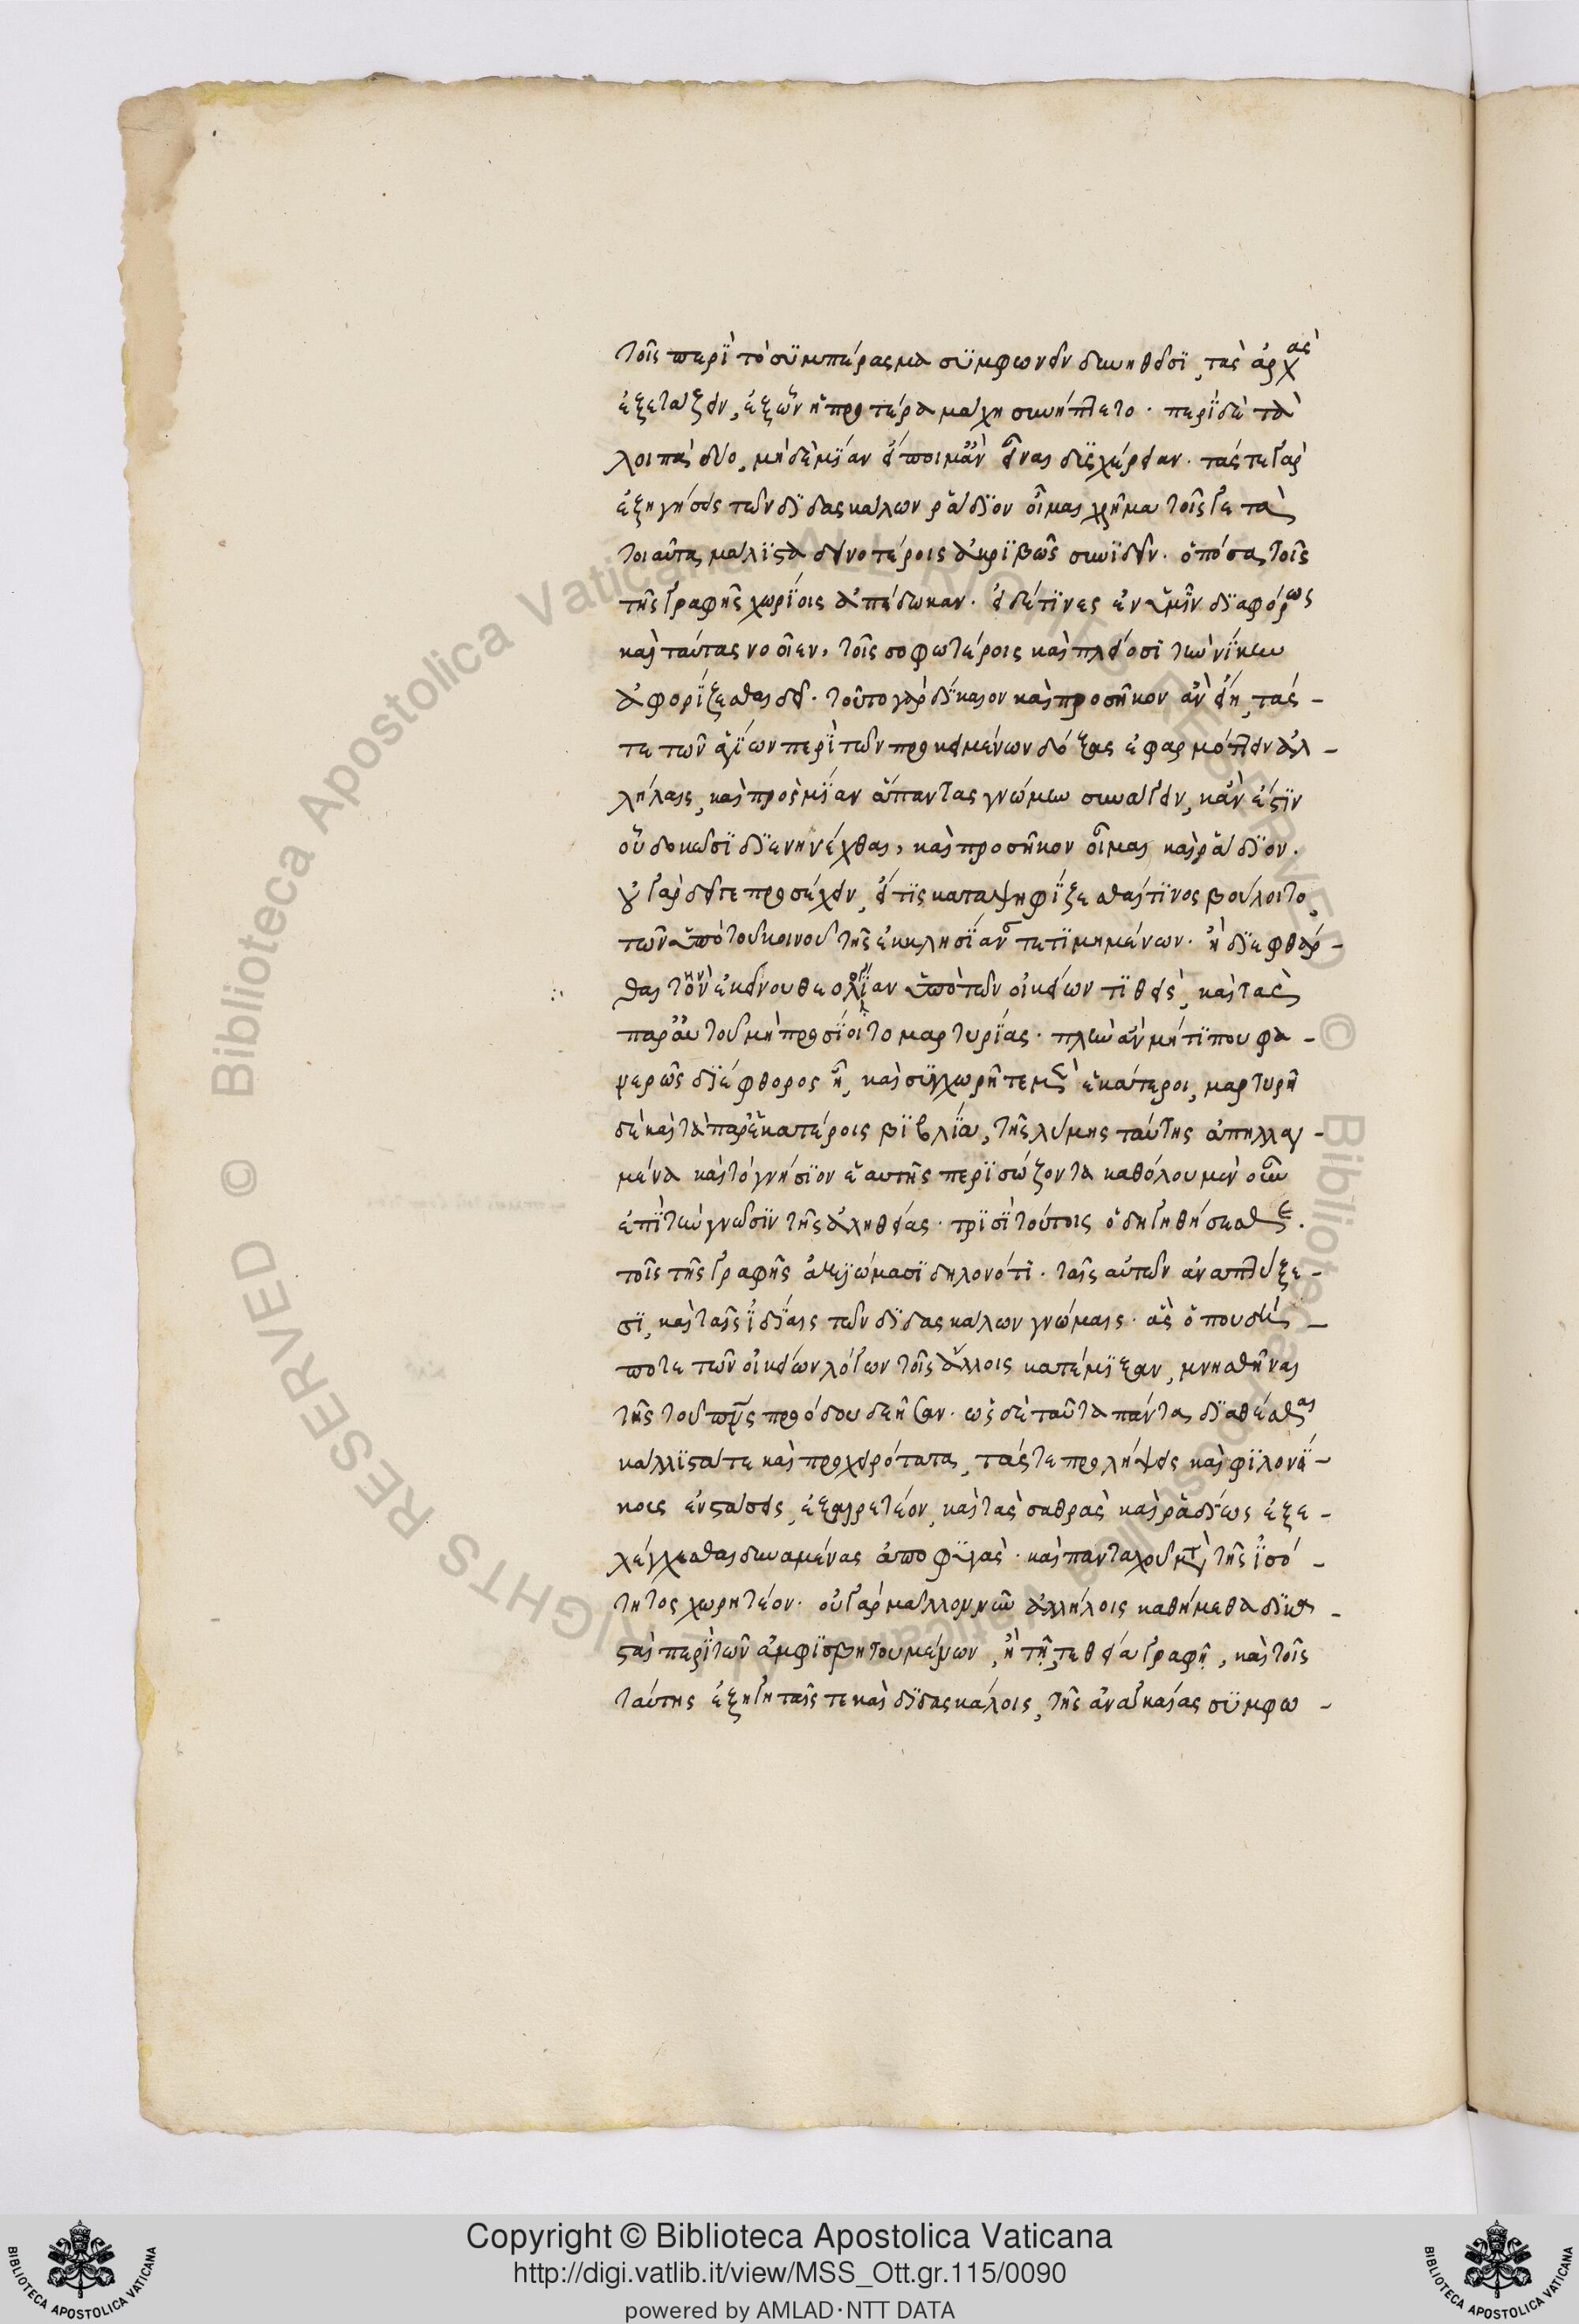 τοῖς περὶ τὸ συμπέρασμα συμφωνεῖν δυνηθεῖσι, τὰς ἀρχὰς
ἐξετάζειν, ἐξ ὧν ἡ προτέρα μάχη συνήπτετο. περὶ δὲ τὰ
λοιπὰ δύο, μηδεμίαν εἴποιμ' ἂν εἶναι δυσχέρειαν. τάς τε γὰρ
ἐξηγήσεις τῶν διδασκάλων ῥάδιον οἶμαι χρῆμα τοῖς γε τὰ
τοιαῦτα μάλιστα δεινοτέροις ἀκριβῶς συνιδεῖν. ὁπόσα τοῖς
τῆς γραφῆς χωρίοις ἀπέδωκαν. εἰ δέ τινες ἐν ὑμῖν διαφόρως
καὶ ταύτας νοοῖεν, τοῖς σοφωτέροις καὶ πλείοσι τὴν νίκην
ἀφορίζεσθαι δεῖ. τοῦτο γὰρ δίκαιον καὶ προσῆκον ἂν εἴη, τάς-
τε τῶν ἁγίων περὶ τῶν προκειμένων δόξας ἐφαρμόττειν ἀλ-
λήλαις, καὶ πρὸς μίαν ἅπαντας γνώμην συνάγειν, κἂν ἔστιν
οὗ δοκῶσι διενηνέχθαι, καὶ προσῆκον οἶμαι καὶ ῥάδιον.
οὐ γὰρ δεῖ γε προσέχειν, εἴ τις καταψηφίζεσθαί τινος βούλοιτο,
τῶν ὑπὸ τοῦ κοινοῦ τῆς ἐκκλησίας τετιμημένων. ἢ διεφθάρ-
θαι τὴν ἐκείνου θεολογίαν ὑπὸ τῶν οἰκείων τιθεὶς, καὶ τὰς
παρ' αὐτοῦ μὴ προσίοιτο μαρτυρίας. πλὴν ἂν μή τί που φα-
νερῶς διέφθορος ᾖ, καὶ συγχωρῆτε μὲν ἑκάτεροι, μαρτυρῇ
δὲ καὶ τὰ παρ' ἑκατέροις βιβλία, τῆς λύμης ταύτης ἀπηλλαγ-
μένα καὶ τὸ γνήσιον ἑαυτῆς περισώζοντα καθόλου μὲν οὖν
ἐπὶ τὴν γνῶσιν τῆς ἀληθείας. τρισὶ τούτοις ὁδηγηθήσεσθε.
τοῖς τῆς γραφῆς ἀξιώμασι δηλονότι. ταῖς αὐτῶν ἀναπτύξε-
σι, καὶ ταῖς ἰδίαις τῶν διδασκάλων γνώμαις. ἃς ὅπου δή-
ποτε τῶν οἰκείων λόγων τοῖς ἄλλοις κατέμιξαν, μνησθῆναι
τῆς τοῦ πνς προόδου δεῆσαν. ὡς δὲ ταῦτα πάντα διαθέσθαι
κάλλιστά τε καὶ προχειρότατα, τάς τε προλήψεις καὶ φιλονεί-
κοις ἐνστάσεις, ἐξαιρετέον, καὶ τὰς σαθρὰς καὶ ῥαδίως ἐξε-
λέγχεσθαι δυναμένας ἀποφυγάς. καὶ πανταχοῦ μετὰ τῆς ἰσό-
τητος χωρητέον. οὐ γὰρ μᾶλλον νῦν ἀλλήλοις καθήμεθα δικα-
σταὶ περὶ τῶν ἀμφισβητουμένων, ἢ τῇ τε θείᾳ γραφῇ, καὶ τοῖς
ταύτης ἐξηγηταῖς τε καὶ διδασκάλοις, τῆς ἀναγκαίας συμφω-
Copyright © Biblioteca Apostolica Vaticana
http://digi.vatlib.it/view/MSS_Ott.gr.115/0090
powered by AMLAD·NTT DATA